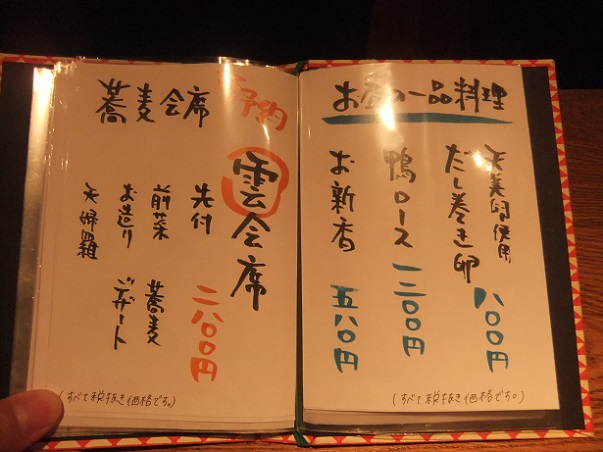 お昼の一品料理
天美卵使用
だし巻き卵
八〇〇円
鴨ロース
一二〇〇円
お新香
五八〇円
(すべて税抜き価格です。)
ご予約
蕎麦会席
雲会席
二八〇〇円
先付
前菜
お造り
天婦羅
蕎麦
デザート
(すべて税抜き価格です。)